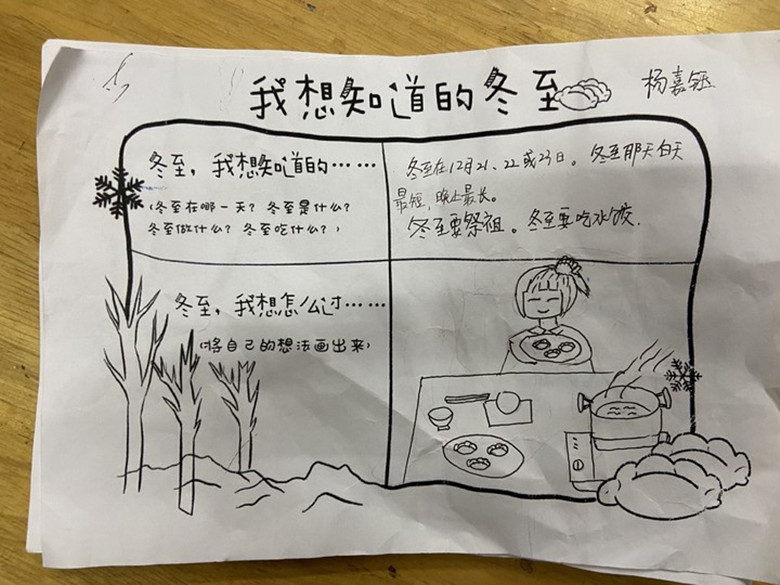 我想知道的冬至
杨嘉钰
冬至，我想知道的……
（冬至在哪一天？冬至是什么？
冬至做什么？冬至吃什么？）
冬至在12月21、22或23日。冬至那天白天
最短，晚上最长。
冬至要祭祖。冬至要吃水饺.
冬至，我想怎么过……
（将自己的想法画出来）